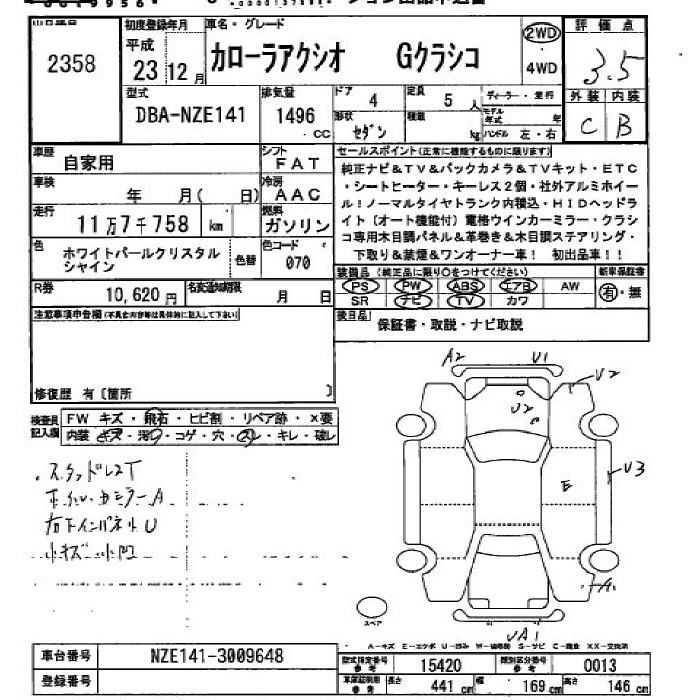 2358
初度登録年月
平成
23 12月
車名・グレード
カローラアクシオ Gクラシコ
2WD
・
4WD
評価点
3.5
外装 内装
C B
型式
DBA-NZE141
排気量
1496
cc
ドア
4
定員
5 人
形状
セダン
積載
kg
ディーラー・並行
モデル年式
年
ハンドル 左・右
車歴
自家用
シフト
FAT
車検
年 月( 日)
冷房
AAC
走行
11万7千758 km
燃料
ガソリン
色
ホワイトパールクリスタルシャイン
色替
色コード
070
R券
10,620円
名変通知期限
月 日
セールスポイント(正常に機能するものに限ります)
純正ナビ&TV&バックカメラ&TVキット・ETC
・シートヒーター・キーレス2個・社外アルミホイー
ル!ノーマルタイヤトランク内積込・HIDヘッドラ
イト(オート機能付)電格ウインカーミラー・クラシ
コ専用木目調パネル&革巻き&木目調ステアリング・
下取り&禁煙&ワンオーナー車! 初出品車!!
装備品(純正品に限り○をつけてください)
PS PW ABS エアB AW
SR ナビ TV カワ
新車保証書
有・無
後日品!
保証書・取説・ナビ取説
注意事項申告欄(不具合内容等は具体的に記入して下さい)
修復歴 有〔箇所 〕
検査員記入欄
FW キズ・飛石・ヒビ割・リペア跡・×要
内装 キズ・汚れ・コゲ・穴・スレ・キレ・破レ
・スタッドレスT
ホイルカミラーA
右下インパネ小U
小キズ小凹
A2 U1
U2
U2
U3
E
A1
UA1
スペア
A-キズ E-エクボ U-凹み W-補修跡 S-サビ C-腐食 XX-交換済
車台番号
NZE141-3009648
登録番号
型式指定番号
参考
15420
類別区分番号
参考
0013
車検証明用
参考
長さ 441 cm
幅 169 cm
高さ 146 cm